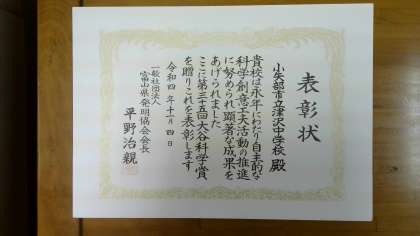 表彰状
小矢部市立津沢中学校 殿
貴校は永年にわたり自主的な
科学創意工夫活動の推進
に努められ顕著な成果を
あげられました
ここに第三十五回大谷科学賞
を贈りこれを表彰します
令和四年十一月四日
一般社団法人
富山県発明協会会長
平野治親